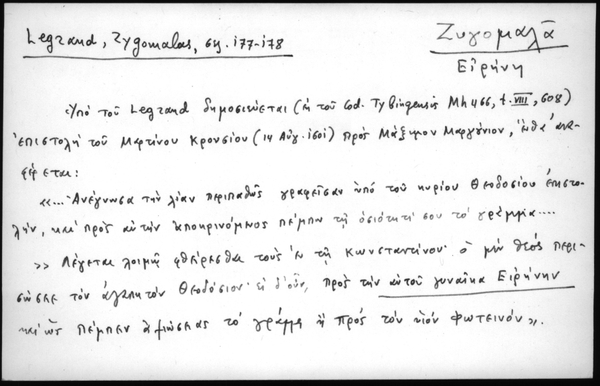 Legrand, Zygomalas, ση. 177-178
Ζυγομαλᾶ
Εἰρήνη
Ὑπὸ τοῦ Legrand δημοσιεύεται (ἐκ τοῦ Cod. Tybingensis Mh 466, t. VIII, 608)
ἐπιστολὴ τοῦ Μαρτίνου Κρουσίου (14 Αὐγ. 1601) πρὸς Μάξιμον Μαργούνιον, ἔνθα ἀνα-
φέρεται:
«...Ἀνέγνωσα τὴν λίαν περιπαθῶς γραφεῖσαν ὑπὸ τοῦ κυρίου Θεοδοσίου ἐπιστο-
λήν, καὶ πρὸς αὐτὴν ἀποκρινόμενος πέμπω τῇ ὁσιότητί σου τὸ γράμμα....
» Λέγεται λοιμῷ φθείρεσθαι τοὺς ἐν τῇ Κωνσταντίνου· ὁ μὲν θεός περι-
σώσαι τὸν ἀγαπητὸν Θεοδόσιον· εἰ δ' οὖν, πρὸς τὴν αὐτοῦ γυναῖκα Εἰρήνην
καὶ ὣς πέμπειν ἀξιώσεις τὸ γράμμα ἢ πρὸς τὸν υἱὸν Φωτεινόν».